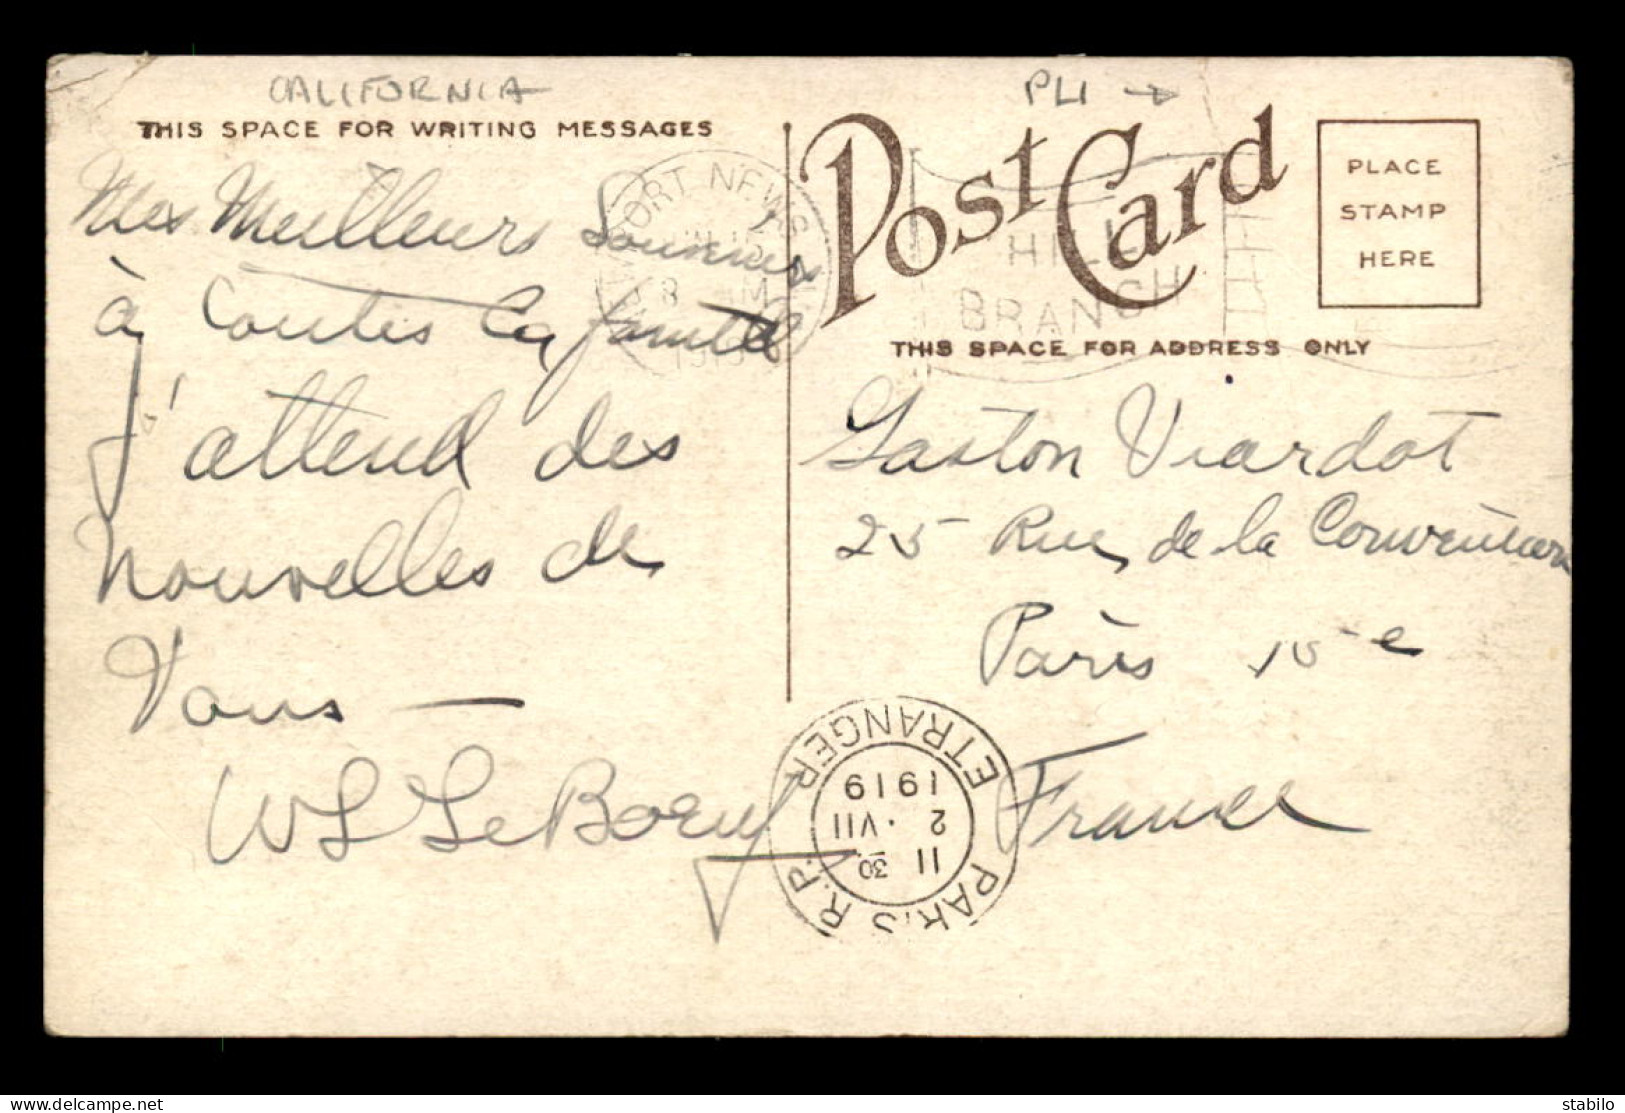 CALIFORNIA
PLI →
THIS SPACE FOR WRITING MESSAGES
Post Card
PLACE
STAMP
HERE
THIS SPACE FOR ADDRESS ONLY
PORT NEWS
HILL
BRANCH
Mes Meilleurs Souvenirs
à toutes la famille
J'attend des
nouvelles de
Vous —
W L LeBoeuf
Gaston Viardot
25 Rue de la Convention
Paris 15e
France
PARIS R.P.
ETRANGER
11 30
2 . VII
1919
stabilo